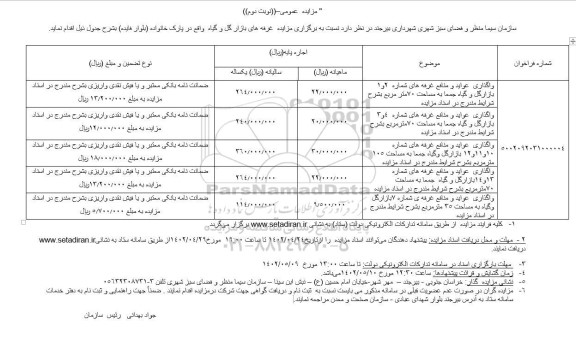 " مزایده عمومی–((نوبت دوم))
سازمان سیما منظر و فضای سبز شهری شهرداری بیرجند در نظر دارد نسبت به برگزاری مزایده غرفه های بازار گل و گیاه واقع در پارک خانواده (بلوار هایده) بشرح جدول ذیل اقدام نماید.
شماره فراخوان
موضوع
اجاره پایه(ریال)
ماهیانه (ریال)
سالیانه (ریال) یکساله
نوع تضمین و مبلغ (ریال)
۵۰۰۲۰۹۲۰۳۱۰۰۰۰۰۴
واگذاری عواید و منافع غرفه های شماره ۱و۲ بازارگل و گیاه جمعا به مساحت ۷۰متر مربع بشرح شرایط مندرج در اسناد مزایده
۲۲/۰۰۰/۰۰۰
۲۱۴/۰۰۰/۰۰۰
ضمانت نامه بانکی معتبر و یا فیش نقدی واریزی بشرح مندرج در اسناد مزایده به مبلغ ۱۳/۲۰۰/۰۰۰ ریال
واگذاری عواید و منافع غرفه های شماره ۳و۴ بازارگل و گیاه جمعا به مساحت ۷۰مترمربع بشرح شرایط مندرج در اسناد مزایده
۲۰/۰۰۰/۰۰۰
۲۴۰/۰۰۰/۰۰۰
ضمانت نامه بانکی معتبر و یا فیش نقدی واریزی بشرح مندرج در اسناد مزایده به مبلغ ۱۲/۰۰۰/۰۰۰ریال
واگذاری عواید و منافع غرفه های شماره ۱۰و۱۱و۱۲ بازارگل وگیاه جمعا به مساحت ۱۰۵ مترمربع بشرح شرایط مندرج در اسناد مزایده
۳۰/۰۰۰/۰۰۰
۳۶۰/۰۰۰/۰۰۰
ضمانت نامه بانکی معتبر و یا فیش نقدی واریزی بشرح مندرج در اسناد مزایده به مبلغ ۱۸/۰۰۰/۰۰۰ ریال
واگذاری عواید و منافع غرفه های شماره ۱۳و۱۴بازارگل و گیاه جمعا به مساحت ۷۰مترمربع بشرح شرایط مندرج در اسناد مزایده
۲۲/۰۰۰/۰۰۰
۲۱۴/۰۰۰/۰۰۰
ضمانت نامه بانکی معتبر و یا فیش نقدی واریزی بشرح مندرج در اسناد مزایده به مبلغ ۱۳/۲۰۰/۰۰۰ریال
واگذاری عواید و منافع غرفه ی شماره ۷بازارگل وگیاه به مساحت ۳۵ مترمربع بشرح شرایط مندرج در اسناد مزایده
۹/۵۰۰/۰۰۰
۱۱۴/۰۰۰/۰۰۰
ضمانت نامه بانکی معتبر و یا فیش نقدی واریزی بشرح مندرج در اسناد مزایده به مبلغ ۵/۷۰۰/۰۰۰ ریال
۱- کلیه فرآیند مزایده از طریق سامانه تدارکات الکترونیکی دولت (ستاد) به نشانی www.setadiran.ir برگزار می گردد.
۲- مهلت و محل دریافت اسناد مزایده: پیشنهاد دهندگان می توانند اسناد مزایده را ازتاریخ ۱۴۰۲/۰۴/۲۱ تا ساعت ۱۹:۰۰ مورخ ۱۴۰۲/۰۴/۲۶از طریق سامانه ستاد به نشانی www.setadiran.ir دریافت نمایند.
۳- مهلت بارگزاری اسناد در سامانه تدارکات الکترونیکی دولت: تا ساعت ۱۳:۰۰ مورخ ۱۴۰۲/۰۵/۰۹
۴- زمان گشایش و قرائت پیشنهادها: ساعت ۱۲:۳۰ مورخ ۱۴۰۲/۰۵/۱۰می‌باشد.
۵- نشانی مزایده گذار: خراسان جنوبی – بیرجند – مهر شهر-خیابان امام حسین (ع) – نبش ابن سینا – سازمان سیما منظر و فضای سبز شهری تلفن ۳-۰۵۶۳۲۳۰۸۷۳۱
۶- مزایده گران در صورت عدم عضویت قبلی در سامانه مذکور می بایست نسبت به ثبت نام و دریافت گواهی جهت شرکت درمزایده اقدام نمایند . ضمناً جهت راهنمایی و ثبت نام به دفتر خدمات سامانه ستاد به آدرس بیرجند بلوار شهدای عبادی - سازمان صنعت و معدن مراجعه نمایند.
جواد بهدانی رئیس سازمان
ParsNamadData